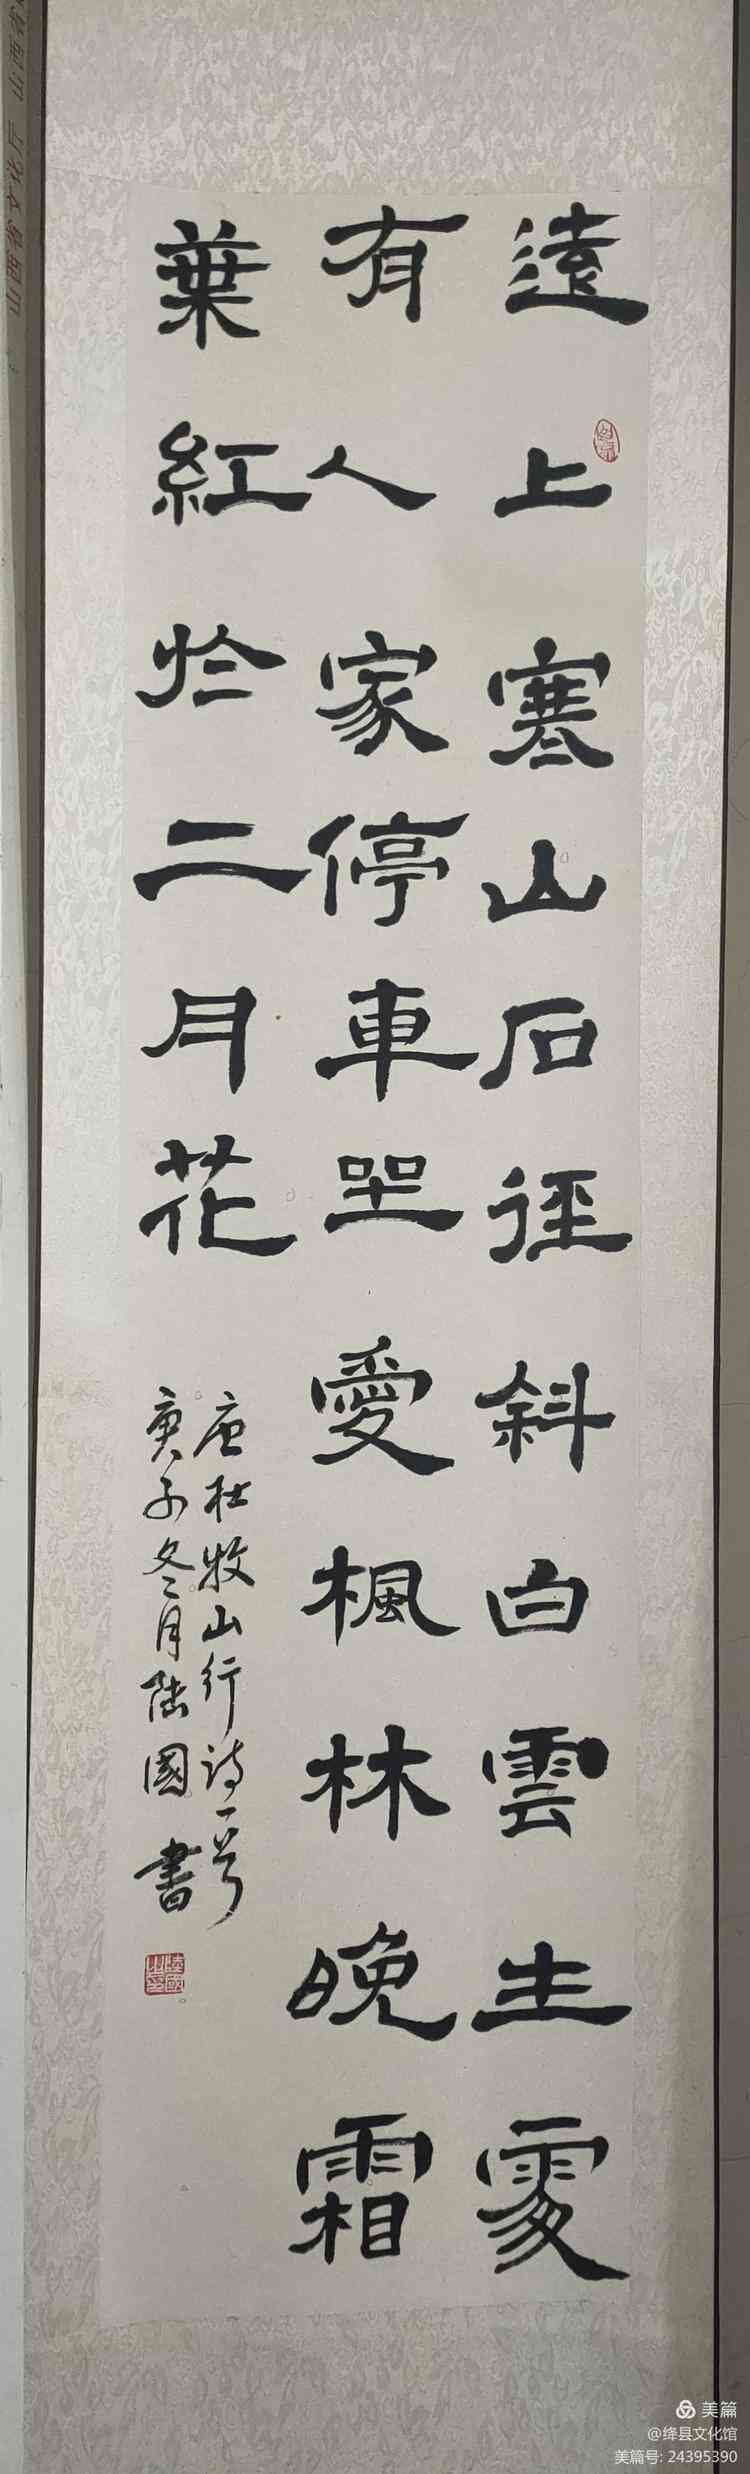 遠上寒山石徑斜白雲生處
有人家停車坐愛楓林晚霜
葉紅於二月花
唐杜牧山行詩一首
庚子冬月陸國書
美篇
@绛县文化馆
美篇号: 24395390